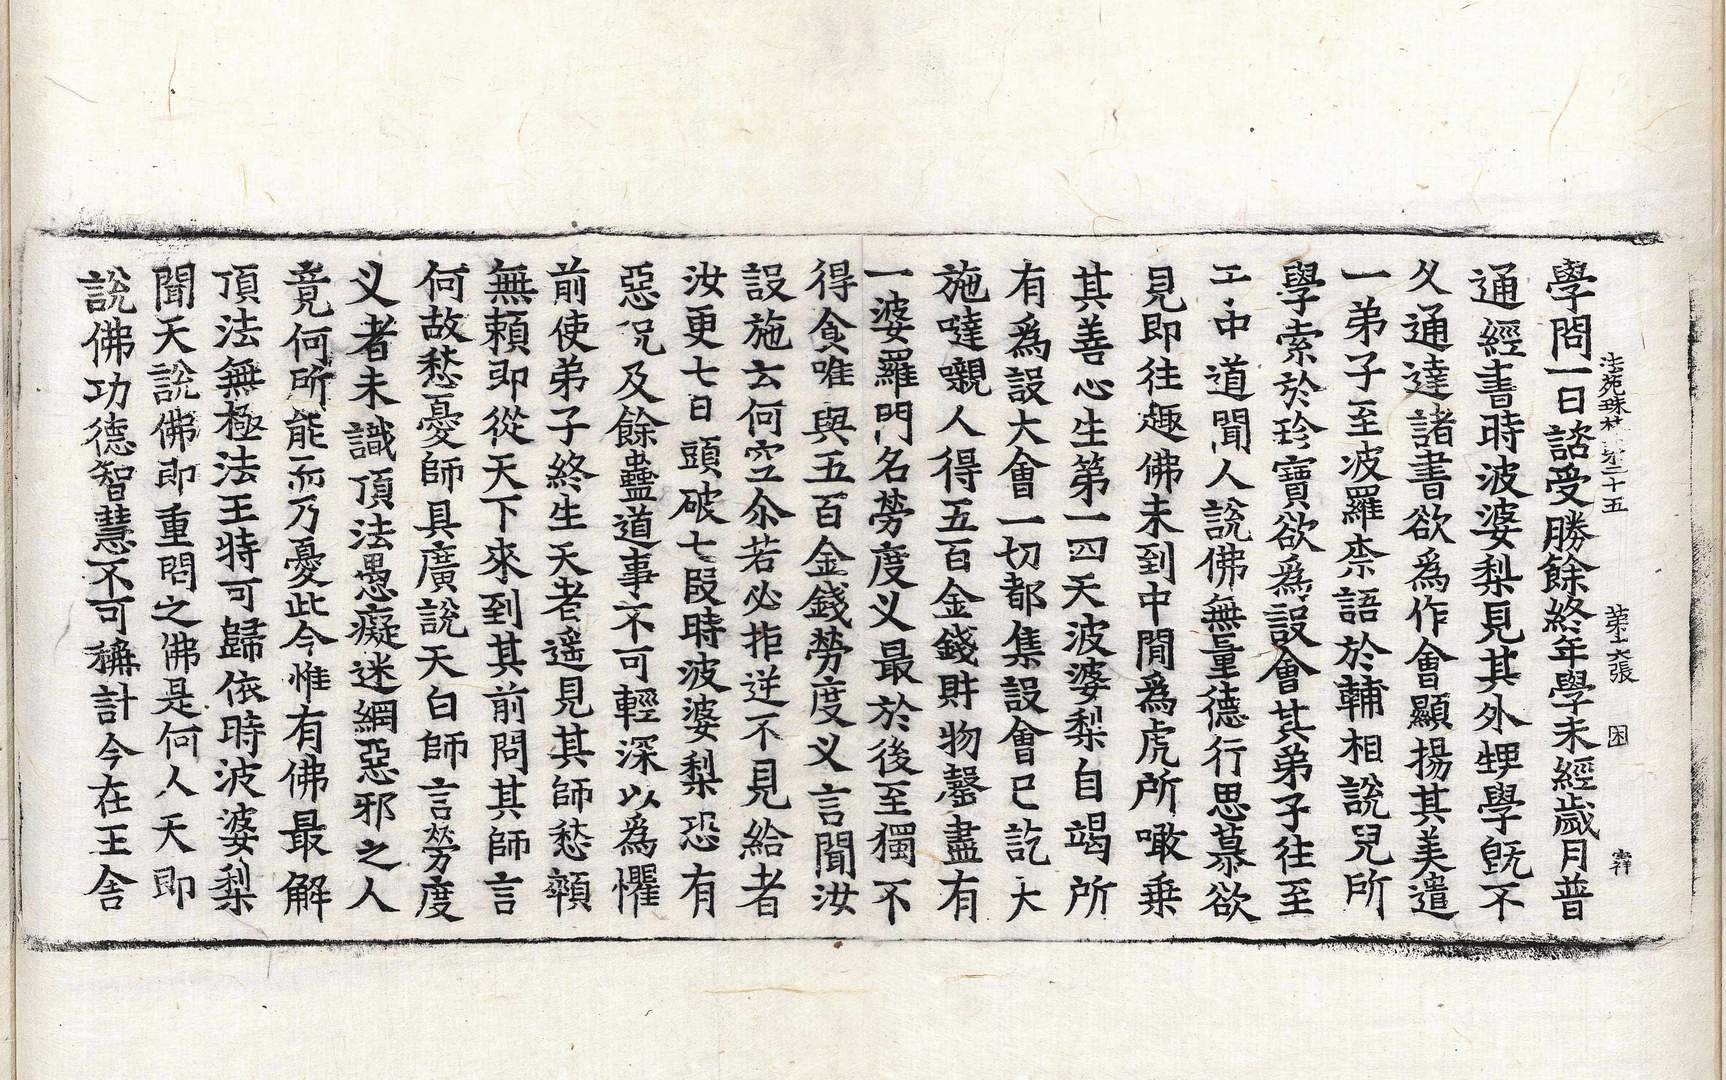 學問一日諮受勝餘終年學未經歲月普
法苑珠林 第三十五 第十六張 困 祥
通經書時波婆梨見其外甥學既不
久通達諸書欲爲作會顯揚其美遣
一弟子至波羅柰語於輔相說兒所
學索於珍寶欲爲設會其弟子往至
于中道聞人說佛無量德行思慕欲
見即往趣佛未到中閒爲虎所噉乗
其善心生第一四天波婆梨自竭所
有爲設大會一切都集設會已訖大
施噠嚫人得五百金錢財物罄盡有
一婆羅門名勞度义最於後至獨不
得食唯與五百金錢勞度义言聞汝
設施云何空尒若必拒逆不見給者
汝更七日頭破七段時波婆梨恐有
惡咒及餘蠱道事不可輕深以爲懼
前使弟子終生天者遥見其師愁顇
無賴即從天下來到其前問其師言
何故愁憂師具廣說天白師言勞度
义者未識頂法愚癡迷網惡邪之人
竟何所能而乃憂此今惟有佛最解
頂法無極法王特可歸依時波婆梨
聞天說佛即重問之佛是何人天即
說佛功德智慧不可稱計今在王舍